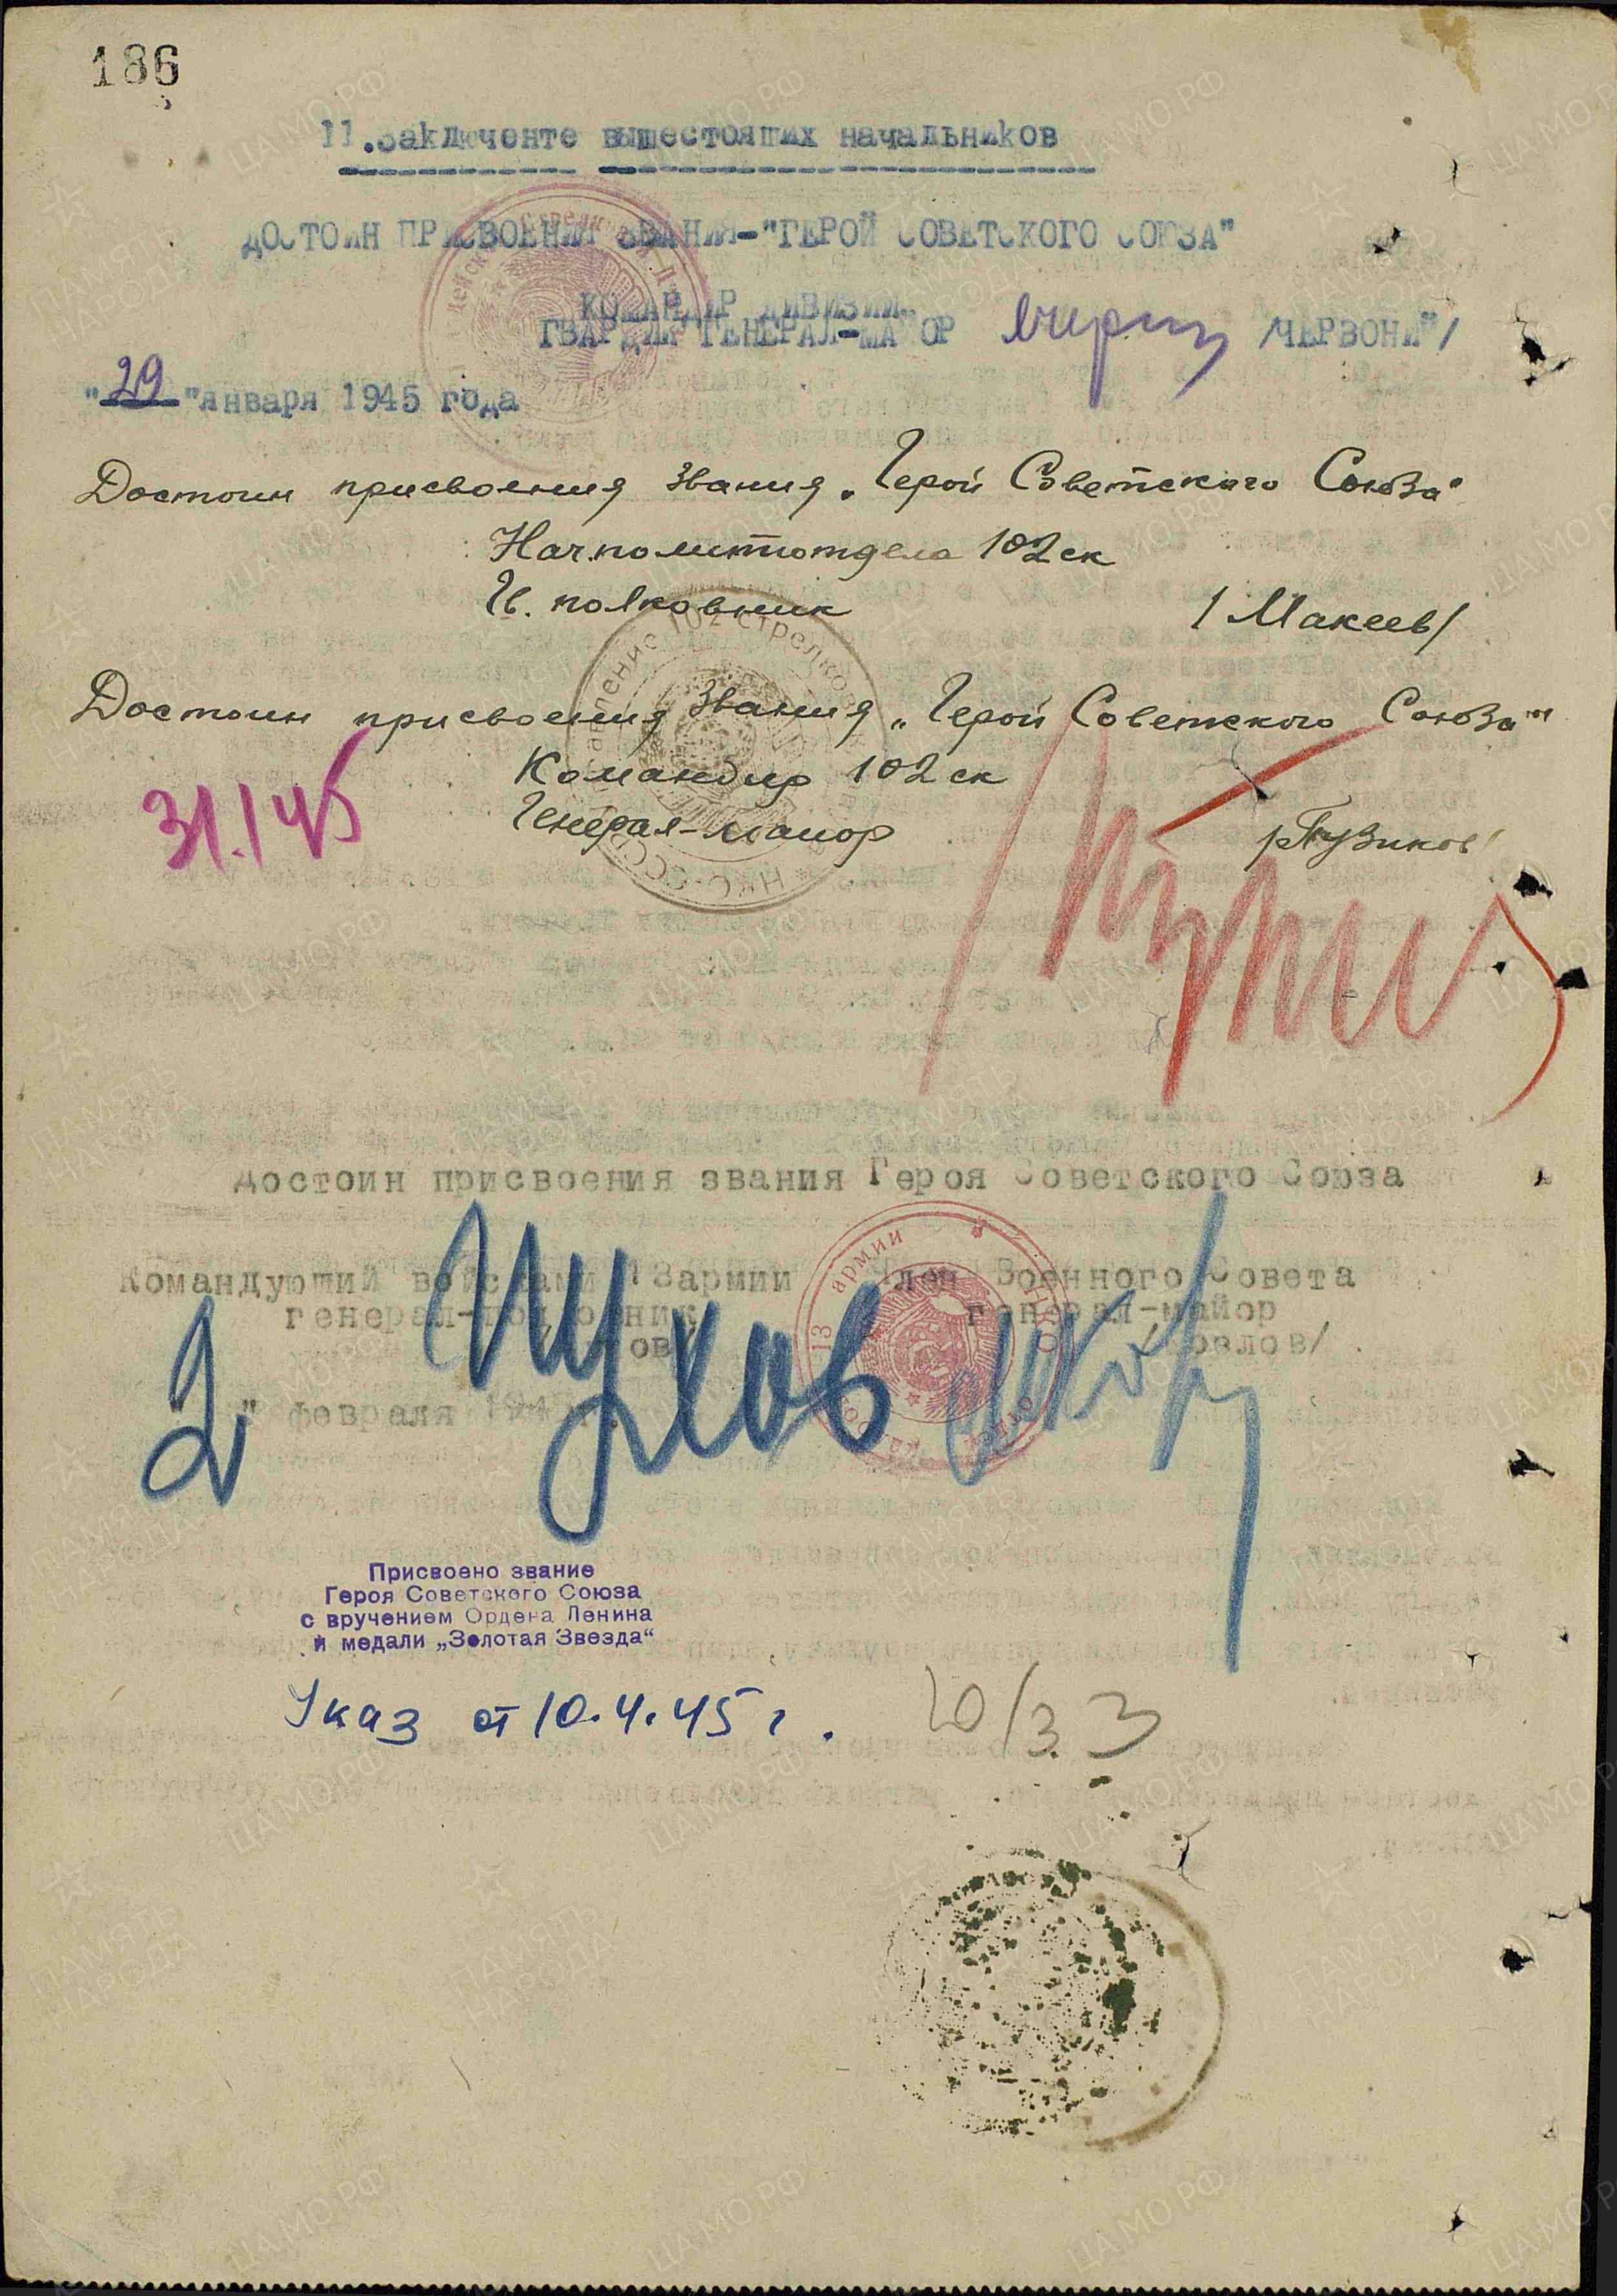 186
11.Заключенте вышестоящих начальников
ДОСТОИН ПРИСВОЕНИЯ ЗВАНИЯ-"ГЕРОЙ СОВЕТСКОГО СОЮЗА"
КОМАНДИР ДИВИЗИИ-
ГВАРДИИ ГЕНЕРАЛ-МАЙОР /ЧЕРВОНИЙ/
"29"января 1945 года
Достоин присвоения звания „Герой Советского Союза"
Нач.политотдела 102 ск
Гв. полковник / Макеев/
Достоин присвоения звания „Герой Советского Союза"
Командир 102 ск
Генерал-майор /Пузиков/
31.I 45
Достоин присвоения звания Героя Советского Союза
Командующий войсками 13армии Член Военного Совета
генерал-полковник генерал-майор
Козлов/
2 " февраля
Пухов
13 армии
НКО
Присвоено звание
Героя Советского Союза
с вручением Ордена Ленина
и медали „Золотая Звезда“
Указ от 10.4.45 г.
20/3.